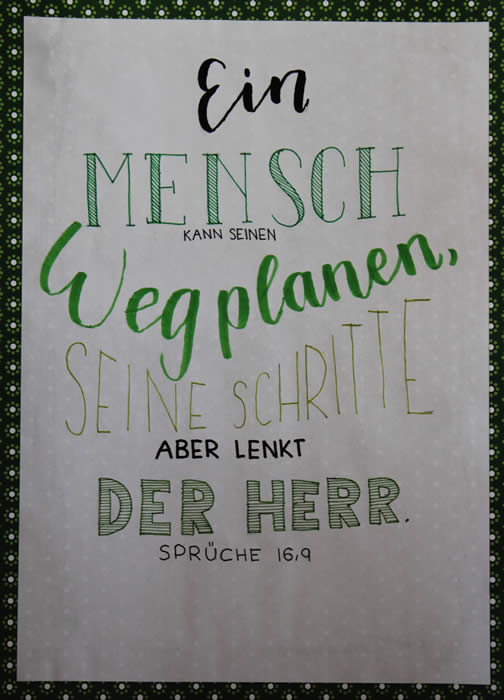 Ein
MENSCH
KANN SEINEN
Weg planen,
SEINE SCHRITTE
ABER LENKT
DER HERR.
SPRÜCHE 16,9